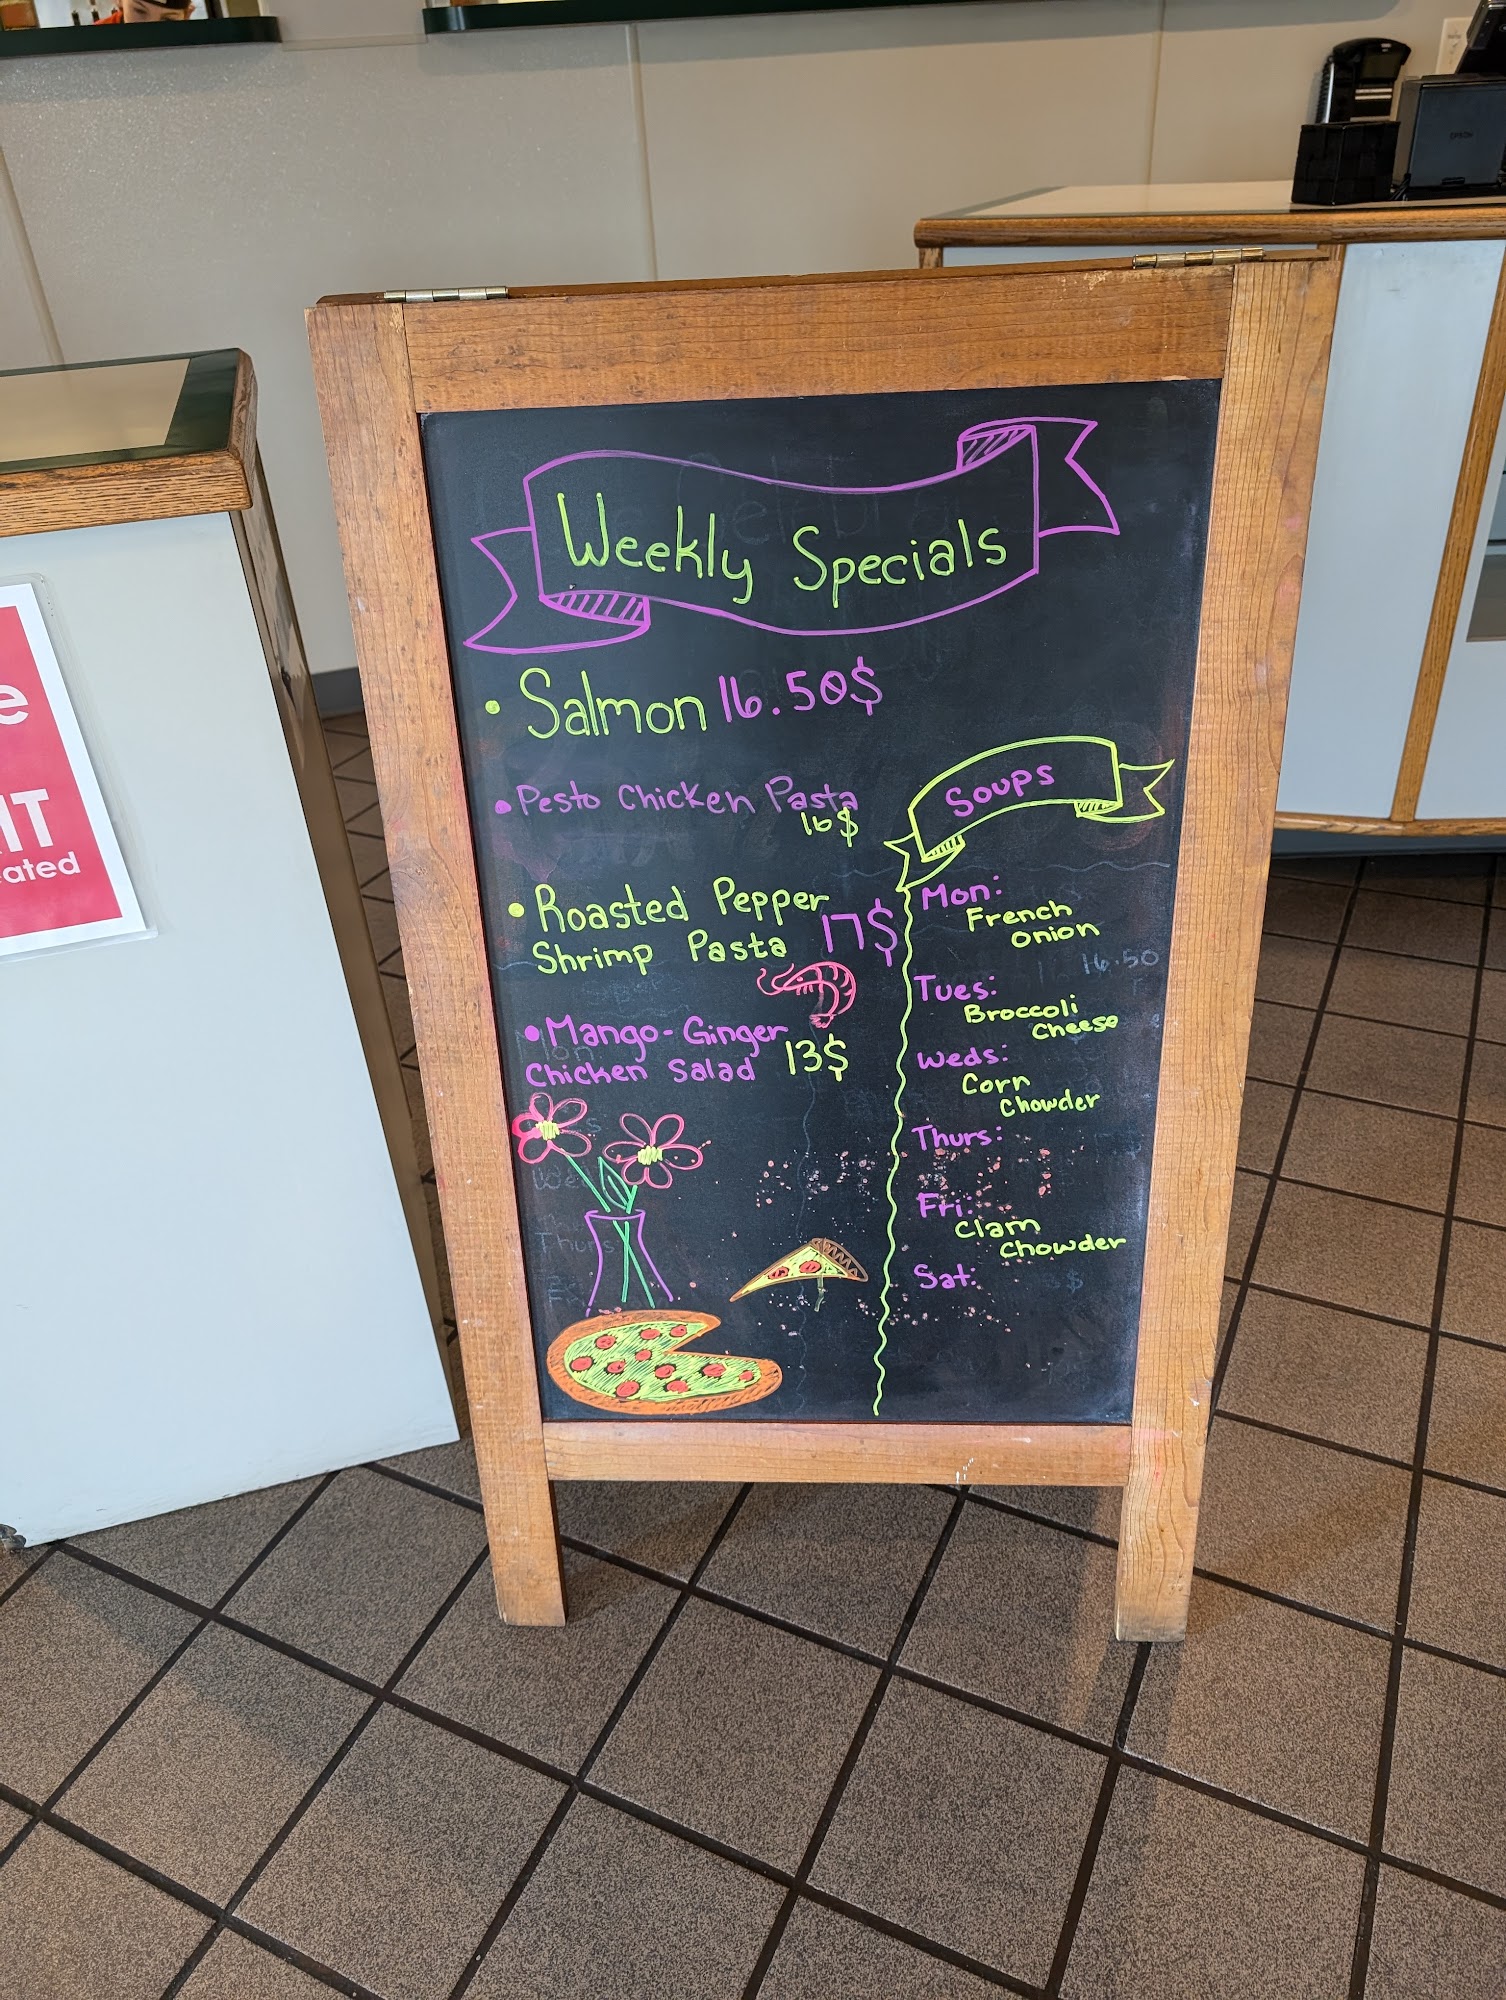 Weekly Specials
• Salmon 16.50$
• Pesto Chicken Pasta
16$
• Roasted Pepper
Shrimp Pasta 17$
• Mango-Ginger
Chicken Salad 13$
Soups
Mon:
French
onion
16.50
Tues:
Broccoli
cheese
Weds:
Corn
Chowder
Thurs:
Fri:
Clam
Chowder
Sat:
e
IT
eated
EPSON
Mon:
We
Thurs